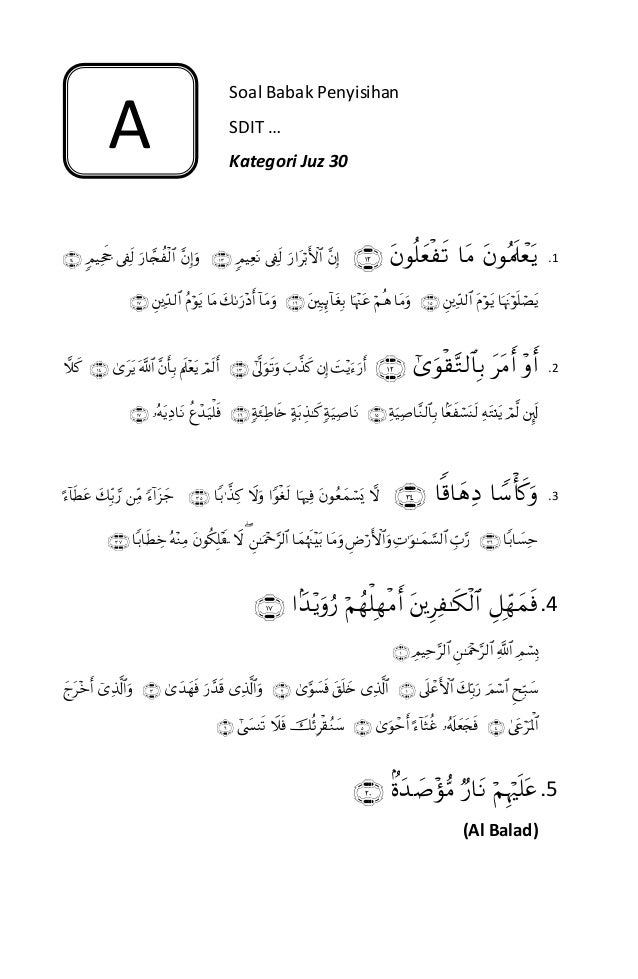 A
Soal Babak Penyisihan
SDIT ...
Kategori Juz 30
1. يَعۡلَمُونَ مَا تَفۡعَلُونَ ١٢ إِنَّ ٱلۡأَبۡرَارَ لَفِى نَعِيمٍ ١٣ وَإِنَّ ٱلۡفُجَّارَ لَفِى جَحِيمٍ ١٤
يَصۡلَوۡنَهَا يَوۡمَ ٱلدِّينِ ١٥ وَمَا هُمۡ عَنۡهَا بِغَآئِبِينَ ١٦ وَمَآ أَدۡرَىٰكَ مَا يَوۡمُ ٱلدِّينِ ١٧
2. أَوۡ أَمَرَ بِٱلتَّقۡوَىٰٓ ١٢ أَرَءَيۡتَ إِن كَذَّبَ وَتَوَلَّىٰٓ ١٣ أَلَمۡ يَعۡلَم بِأَنَّ ٱللَّهَ يَرَىٰ ١٤ كَلَّا
لَئِن لَّمۡ يَنتَهِ لَنَسۡفَعَۢا بِٱلنَّاصِيَةِ ١٥ نَاصِيَةٍ كَٰذِبَةٍ خَاطِئَةٍ ١٦ فَلۡيَدۡعُ نَادِيَهُۥ ١٧
3. وَكَأۡسًا دِهَاقًا ٣٤ لَّا يَسۡمَعُونَ فِيهَا لَغۡوًا وَلَا كِذَّٰبًا ٣٥ جَزَآءً مِّن رَّبِّكَ عَطَآءً
حِسَابًا ٣٦ رَّبِّ ٱلسَّمَٰوَٰتِ وَٱلۡأَرۡضِ وَمَا بَيۡنَهُمَا ٱلرَّحۡمَٰنِ ۖ لَا يَمۡلِكُونَ مِنۡهُ خِطَابًا ٣٧
4. فَمَهِّلِ ٱلۡكَٰفِرِينَ أَمۡهِلۡهُمۡ رُوَيۡدَۢا ١٧
بِسۡمِ ٱللَّهِ ٱلرَّحۡمَٰنِ ٱلرَّحِيمِ ١
سَبِّحِ ٱسۡمَ رَبِّكَ ٱلۡأَعۡلَى ١ ٱلَّذِى خَلَقَ فَسَوَّىٰ ٢ وَٱلَّذِى قَدَّرَ فَهَدَىٰ ٣ وَٱلَّذِىٓ أَخۡرَجَ
ٱلۡمَرۡعَىٰ ٤ فَجَعَلَهُۥ غُثَآءً أَحۡوَىٰ ٥ سَنُقۡرِئُكَ فَلَا تَنسَىٰٓ ٦
5. عَلَيۡهِمۡ نَارٌ مُّؤۡصَدَةُۢ ٢٠
(Al Balad)